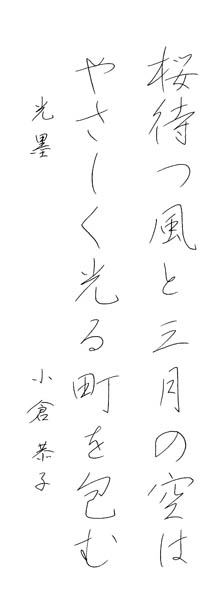 桜待つ風と三月の空は
やさしく光る町を包む
光墨
小倉恭子